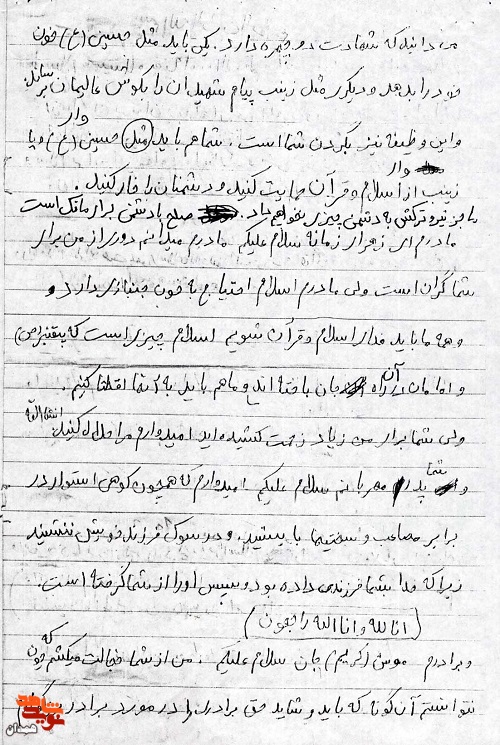 می دانید که شهادت دو چهره دارد. یکی باید مثل حسین (ع) خون
خود را بدهد و دیگری مثل زینب پیام شهیدان را بگوش عالمیان برساند.
و این وظیفه نیز بگردن شما است، شما هم باید مثل حسین (ع) و یا
وار
وار
زینب از اسلام و قرآن حمایت کنید و دشمنان را خار کنید.
ما جز تیر و ترکش به دشمن چیزی نخواهیم داد. صلح با دشمن برای ما ننگ است
مادرم ای زهرای زمانه سلام علیکم مادرم میدانم دوری از من برای
شما گران است ولی مادرم اسلام احتیاج به خون دارد و
و همه ما باید فدای اسلام و قرآن شویم اسلام چیزی است که پیغمبر (ص)
و امامان در آن راه جان باخته اند و ما هم باید به آنها اقتدا کنیم.
انشاءالله
ولی شما برای من زیاد زحمت کشیده اید امیدوارم مرا حلال کنید.
شما
و پدر مهربانم سلام علیکم امیدوارم که همچون کوهی استوار در
برابر مصائب و سختیها باشید. و در سوگ فرزند خویش ننشینید
زیرا که خدا بشما فرزندی داده بود و سپس او را از شما گرفته است.
(انا لله و انا الیه راجعون)
و برادرم موسی (کریم) جان سلام علیکم، من از شما خجالت میکشم چون که
نتوانستم آن گونه که باید و شاید حق برادری را در مورد برادر